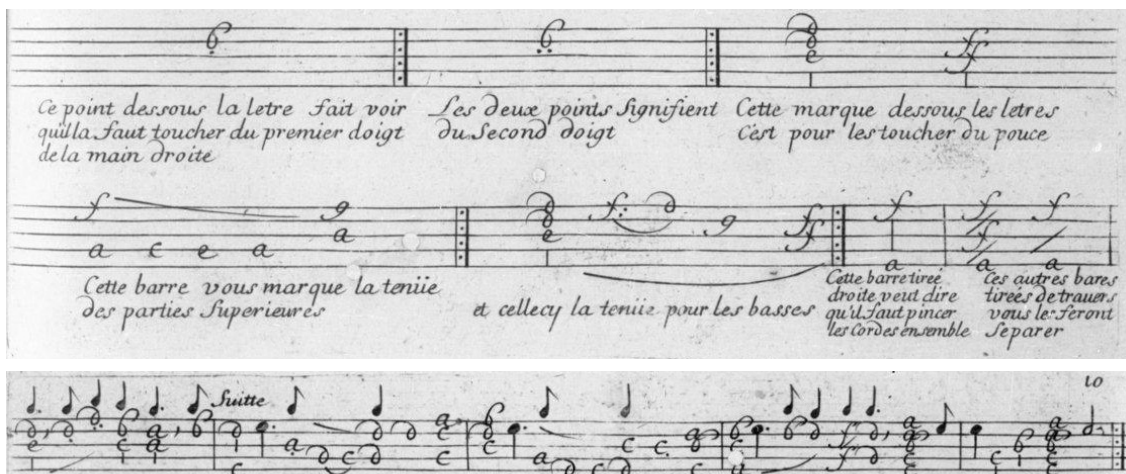 Ce point dessous la letre fait voir
qu'il la faut toucher du premier doigt
de la main droite
Les deux points signifient
du Second doigt
Cette marque dessous les letres
C'est pour les toucher du pouce
a c e a a
Cette barre vous marque la tenüe
des parties Superieures
et cellecy la tenüe pour les basses
Cette barre tireé
droite veut dire
qu'il faut pincer
les Cordes ensemble
Ces autres bares
tireés de trauers
vous les feront
Separer
10
Suitte